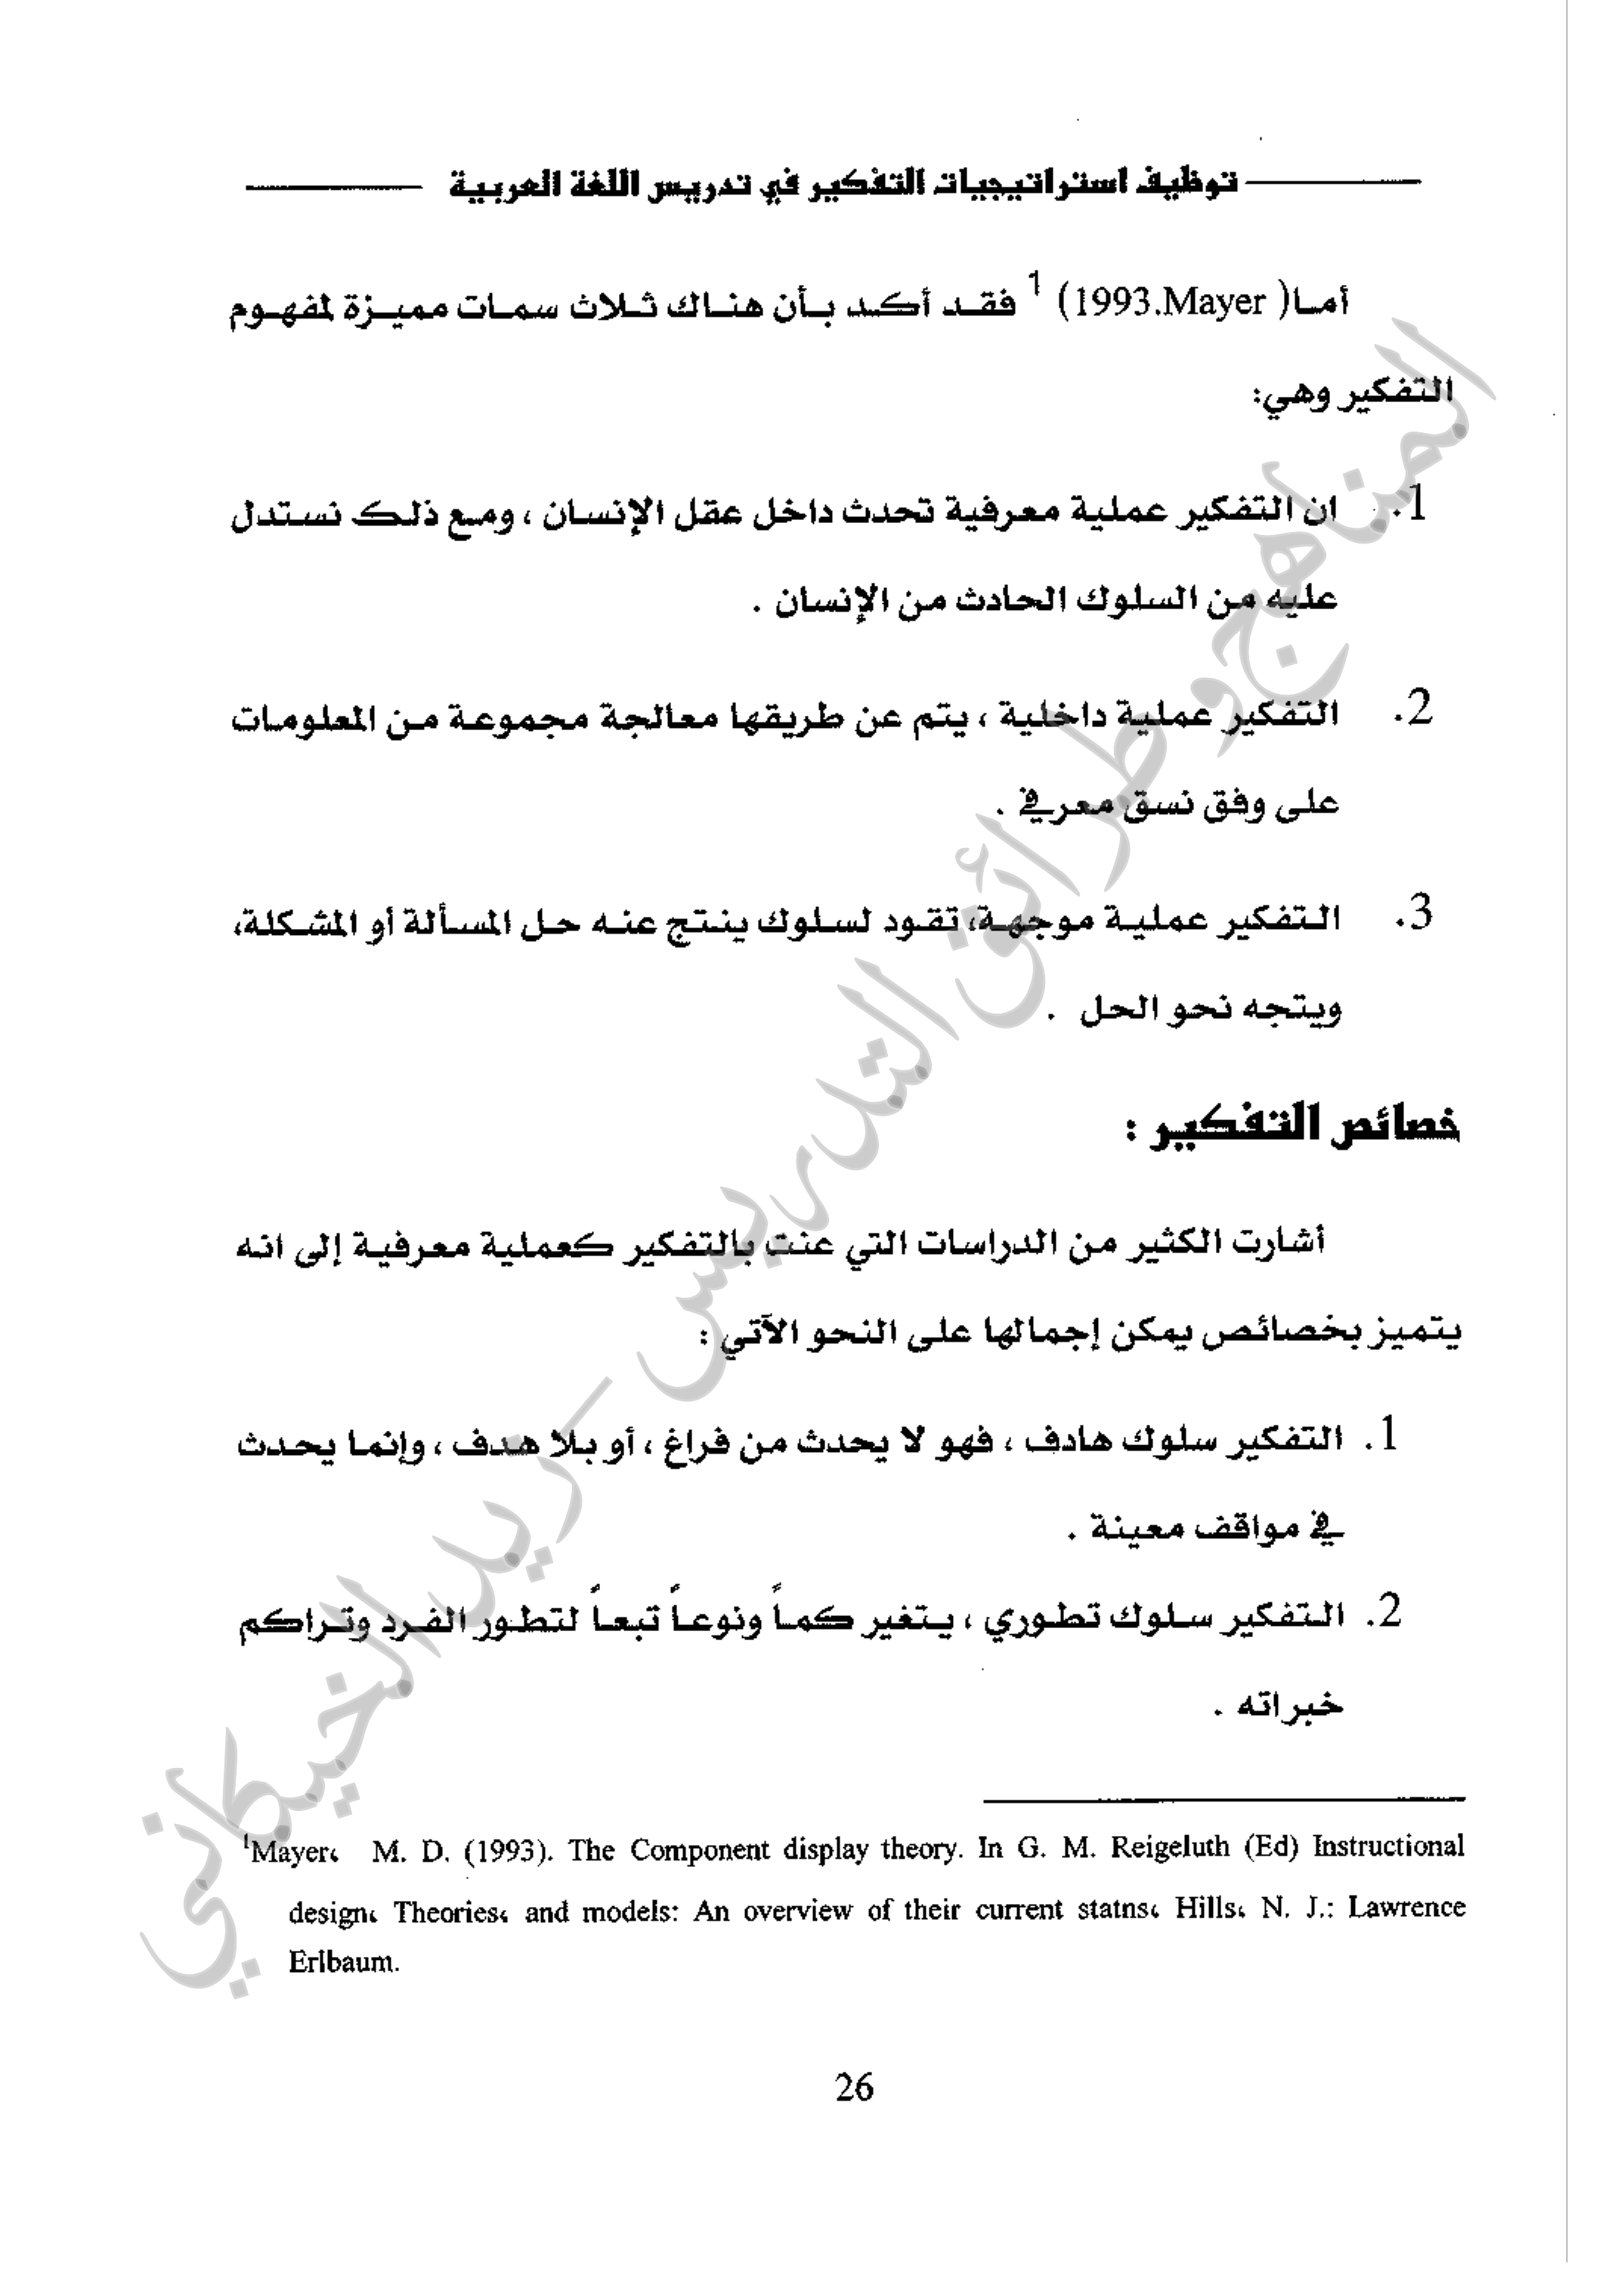 توظيف استراتيجيات التفكير في تدريس اللغة العربية
أما( 1993.Mayer) 1 فقد أكد بأن هناك ثلاث سمات مميزة لمفهوم
التفكير وهي:
1. ان التفكير عملية معرفية تحدث داخل عقل الإنسان ، ومع ذلك نستدل
عليه من السلوك الحادث من الإنسان .
2. التفكير عملية داخلية ، يتم عن طريقها معالجة مجموعة من المعلومات
على وفق نسق معرفي .
3. التفكير عملية موجهة، تقود لسلوك ينتج عنه حل المسألة أو المشكلة،
ويتجه نحو الحل .
خصائص التفكير :
أشارت الكثير من الدراسات التي عنت بالتفكير كعملية معرفية إلى انه
يتميز بخصائص يمكن إجمالها على النحو الآتي :
1. التفكير سلوك هادف ، فهو لا يحدث من فراغ ، أو بلا هدف ، وإنما يحدث
في مواقف معينة .
2. التفكير سلوك تطوري ، يتغير كماً ونوعاً تبعاً لتطور الفرد وتراكم
خبراته .
1Mayer، M. D. (1993). The Component display theory. In G. M. Reigeluth (Ed) Instructional
design، Theories، and models: An overview of their current statns، Hills، N. J.: Lawrence
Erlbaum.
26
المناهج وطرائق التدريس - زيد الخيكاني